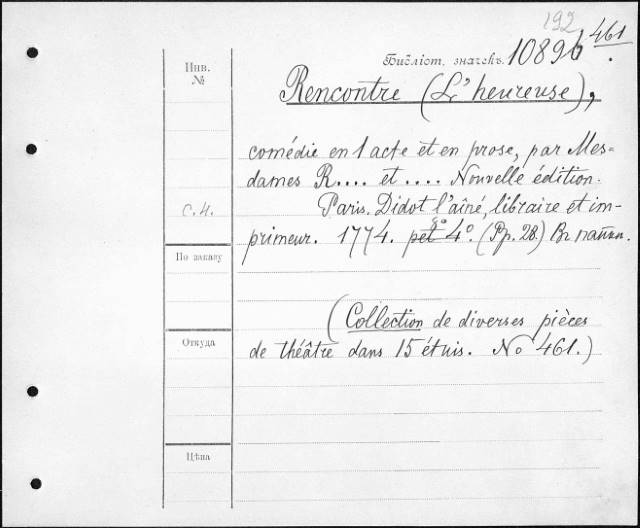 192
Библіот. значекъ. 1089б 461.
Инв.
№
Rencontre (L'heureuse),
comédie en 1 acte et en prose, par Mes=
dames R.... et .... Nouvelle édition.
с.н.
Paris. Didot l'aîné, libraire et im-
primeur. 1774. pet 4º. 8º (Pp. 28.) Въ папкѣ.
По заказу
(Collection de diverses pièces
Откуда
de théâtre dans 15 étuis. No 461.)
Цѣна